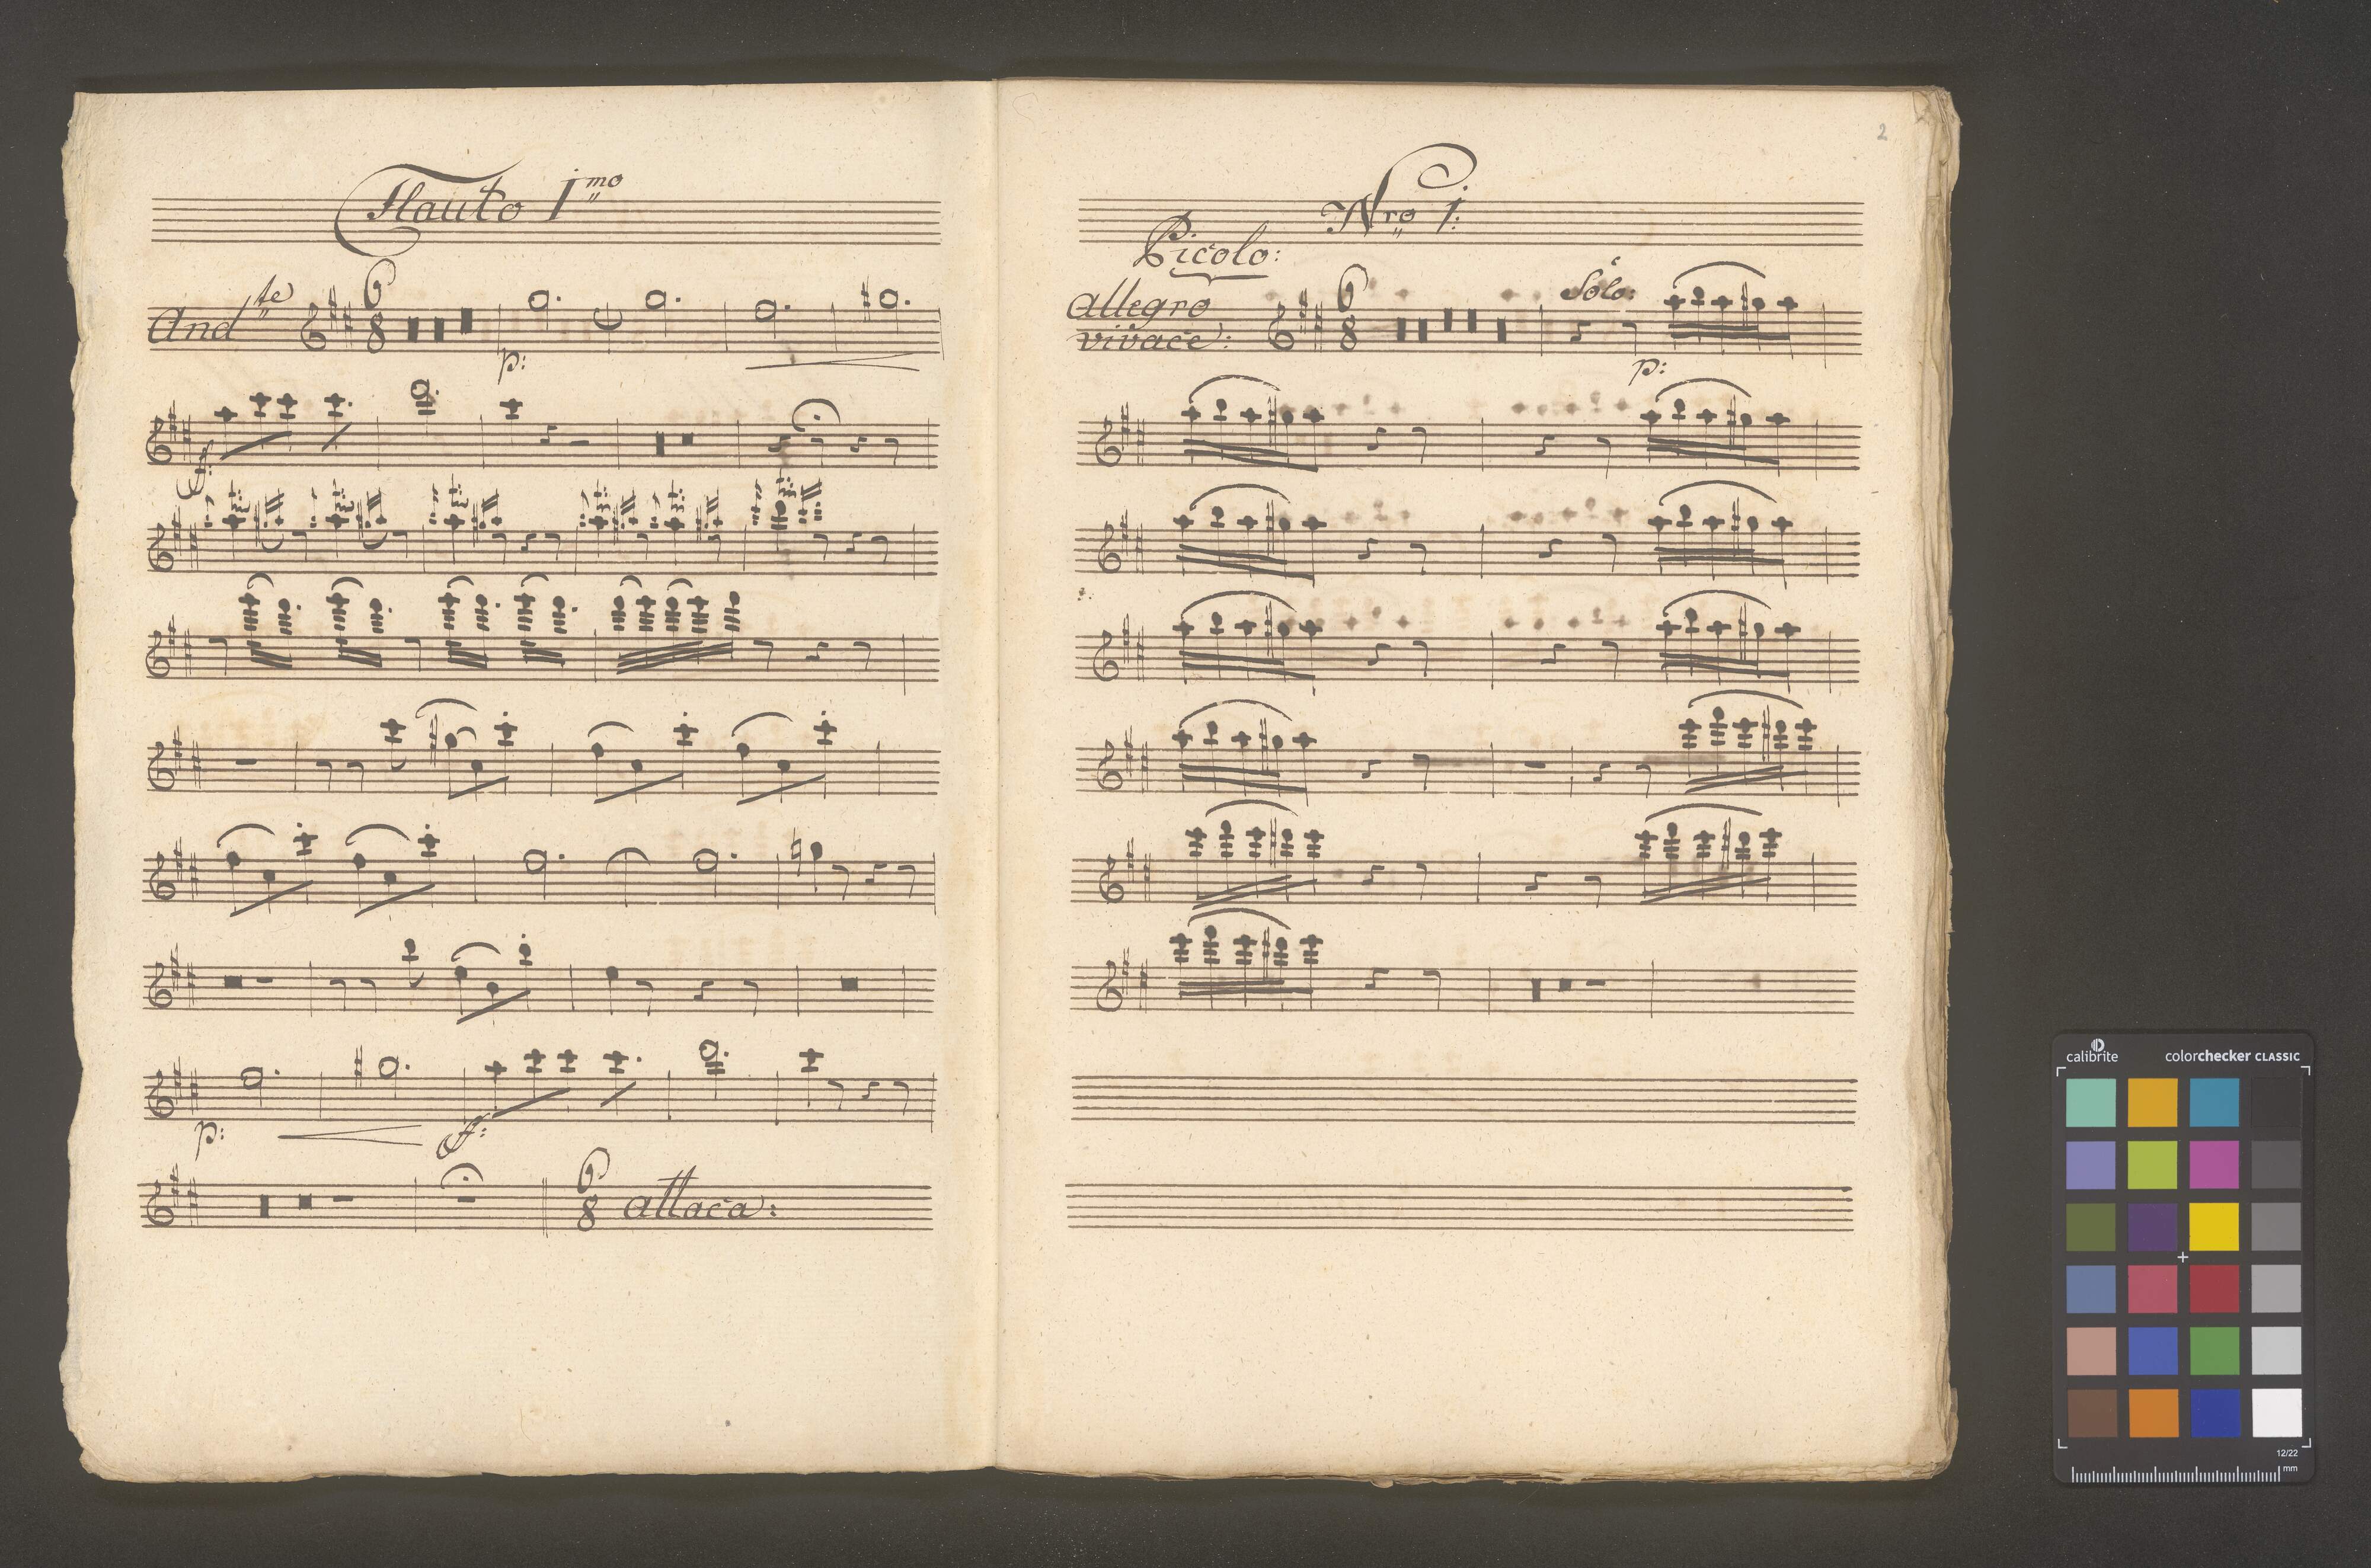 Flauto 1mo
Andte
6
8
p:
f:
p:
f:
6
8
attaca:
2
Nro 1:
Picolo:
allegro
vivace:
6
8
Solo:
p:
calibrite
colorchecker CLASSIC
12/22
mm